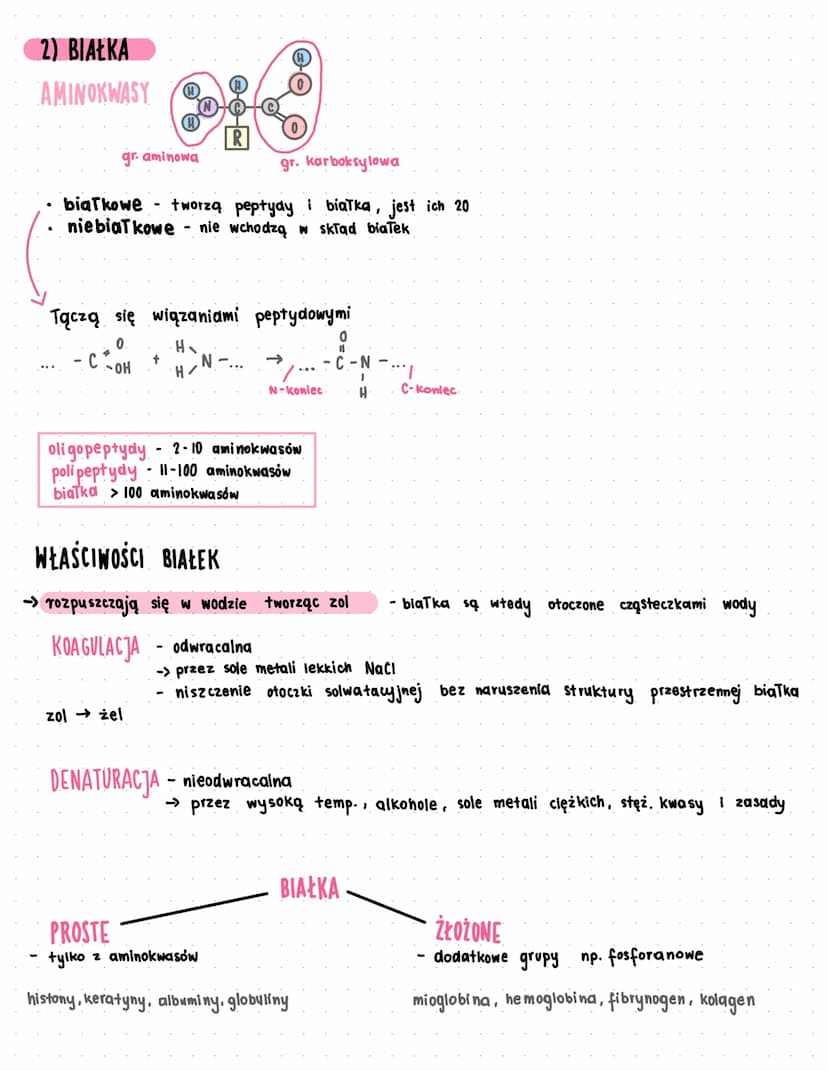 2) BIAŁKA
AMINOKWASY
H H N H C R C H O O
gr. aminowa
gr. karboksylowa
• białkowe - tworzą peptydy i białka, jest ich 20
• niebiałkowe - nie wchodzą w skład białek
łączą się wiązaniami peptydowymi
... - C O OH + H H N - ... → ... - C - N - ... O H
N-koniec C-koniec
oligopeptydy - 2-10 aminokwasów
polipeptydy - 11-100 aminokwasów
białka > 100 aminokwasów
WŁAŚCIWOŚCI BIAŁEK
→ rozpuszczają się w wodzie tworząc zol - białka są wtedy otoczone cząsteczkami wody
KOAGULACJA - odwracalna
-> przez sole metali lekkich NaCl
- niszczenie otoczki solwatacyjnej bez naruszenia struktury przestrzennej białka
zol → żel
DENATURACJA - nieodwracalna
→ przez wysoką temp., alkohole, sole metali ciężkich, stęż. kwasy i zasady
BIAŁKA
PROSTE
- tylko z aminokwasów
histony, keratyny, albuminy, globuliny
ŻŁOŻONE
- dodatkowe grupy np. fosforanowe
mioglobina, hemoglobina, fibrynogen, kolagen